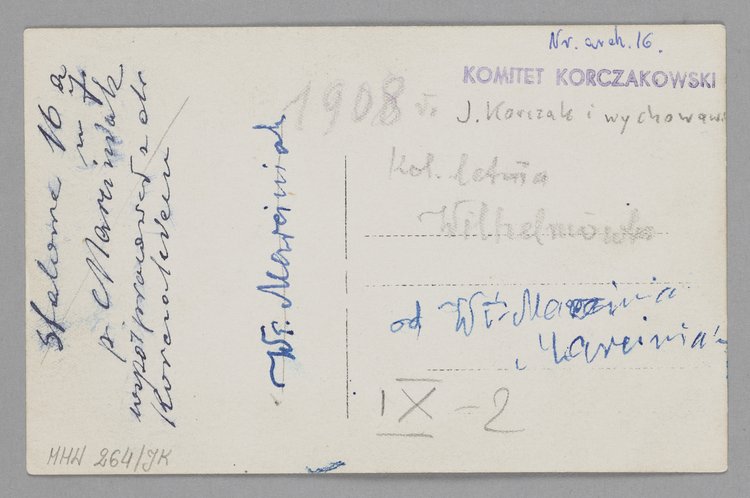 Nr. arch. 16.
KOMITET KORCZAKOWSKI
1908 r.
J. Korczak i wychowaw
Kol. letnia
Wilhelmówka
od Wł. Marcinia
Marciniak
IX-2
Wł. Marciniak
Stalowa 16 a
m 7.
p. Marciniak
współpracował z dr
Korczakiem
MHW 264/JK